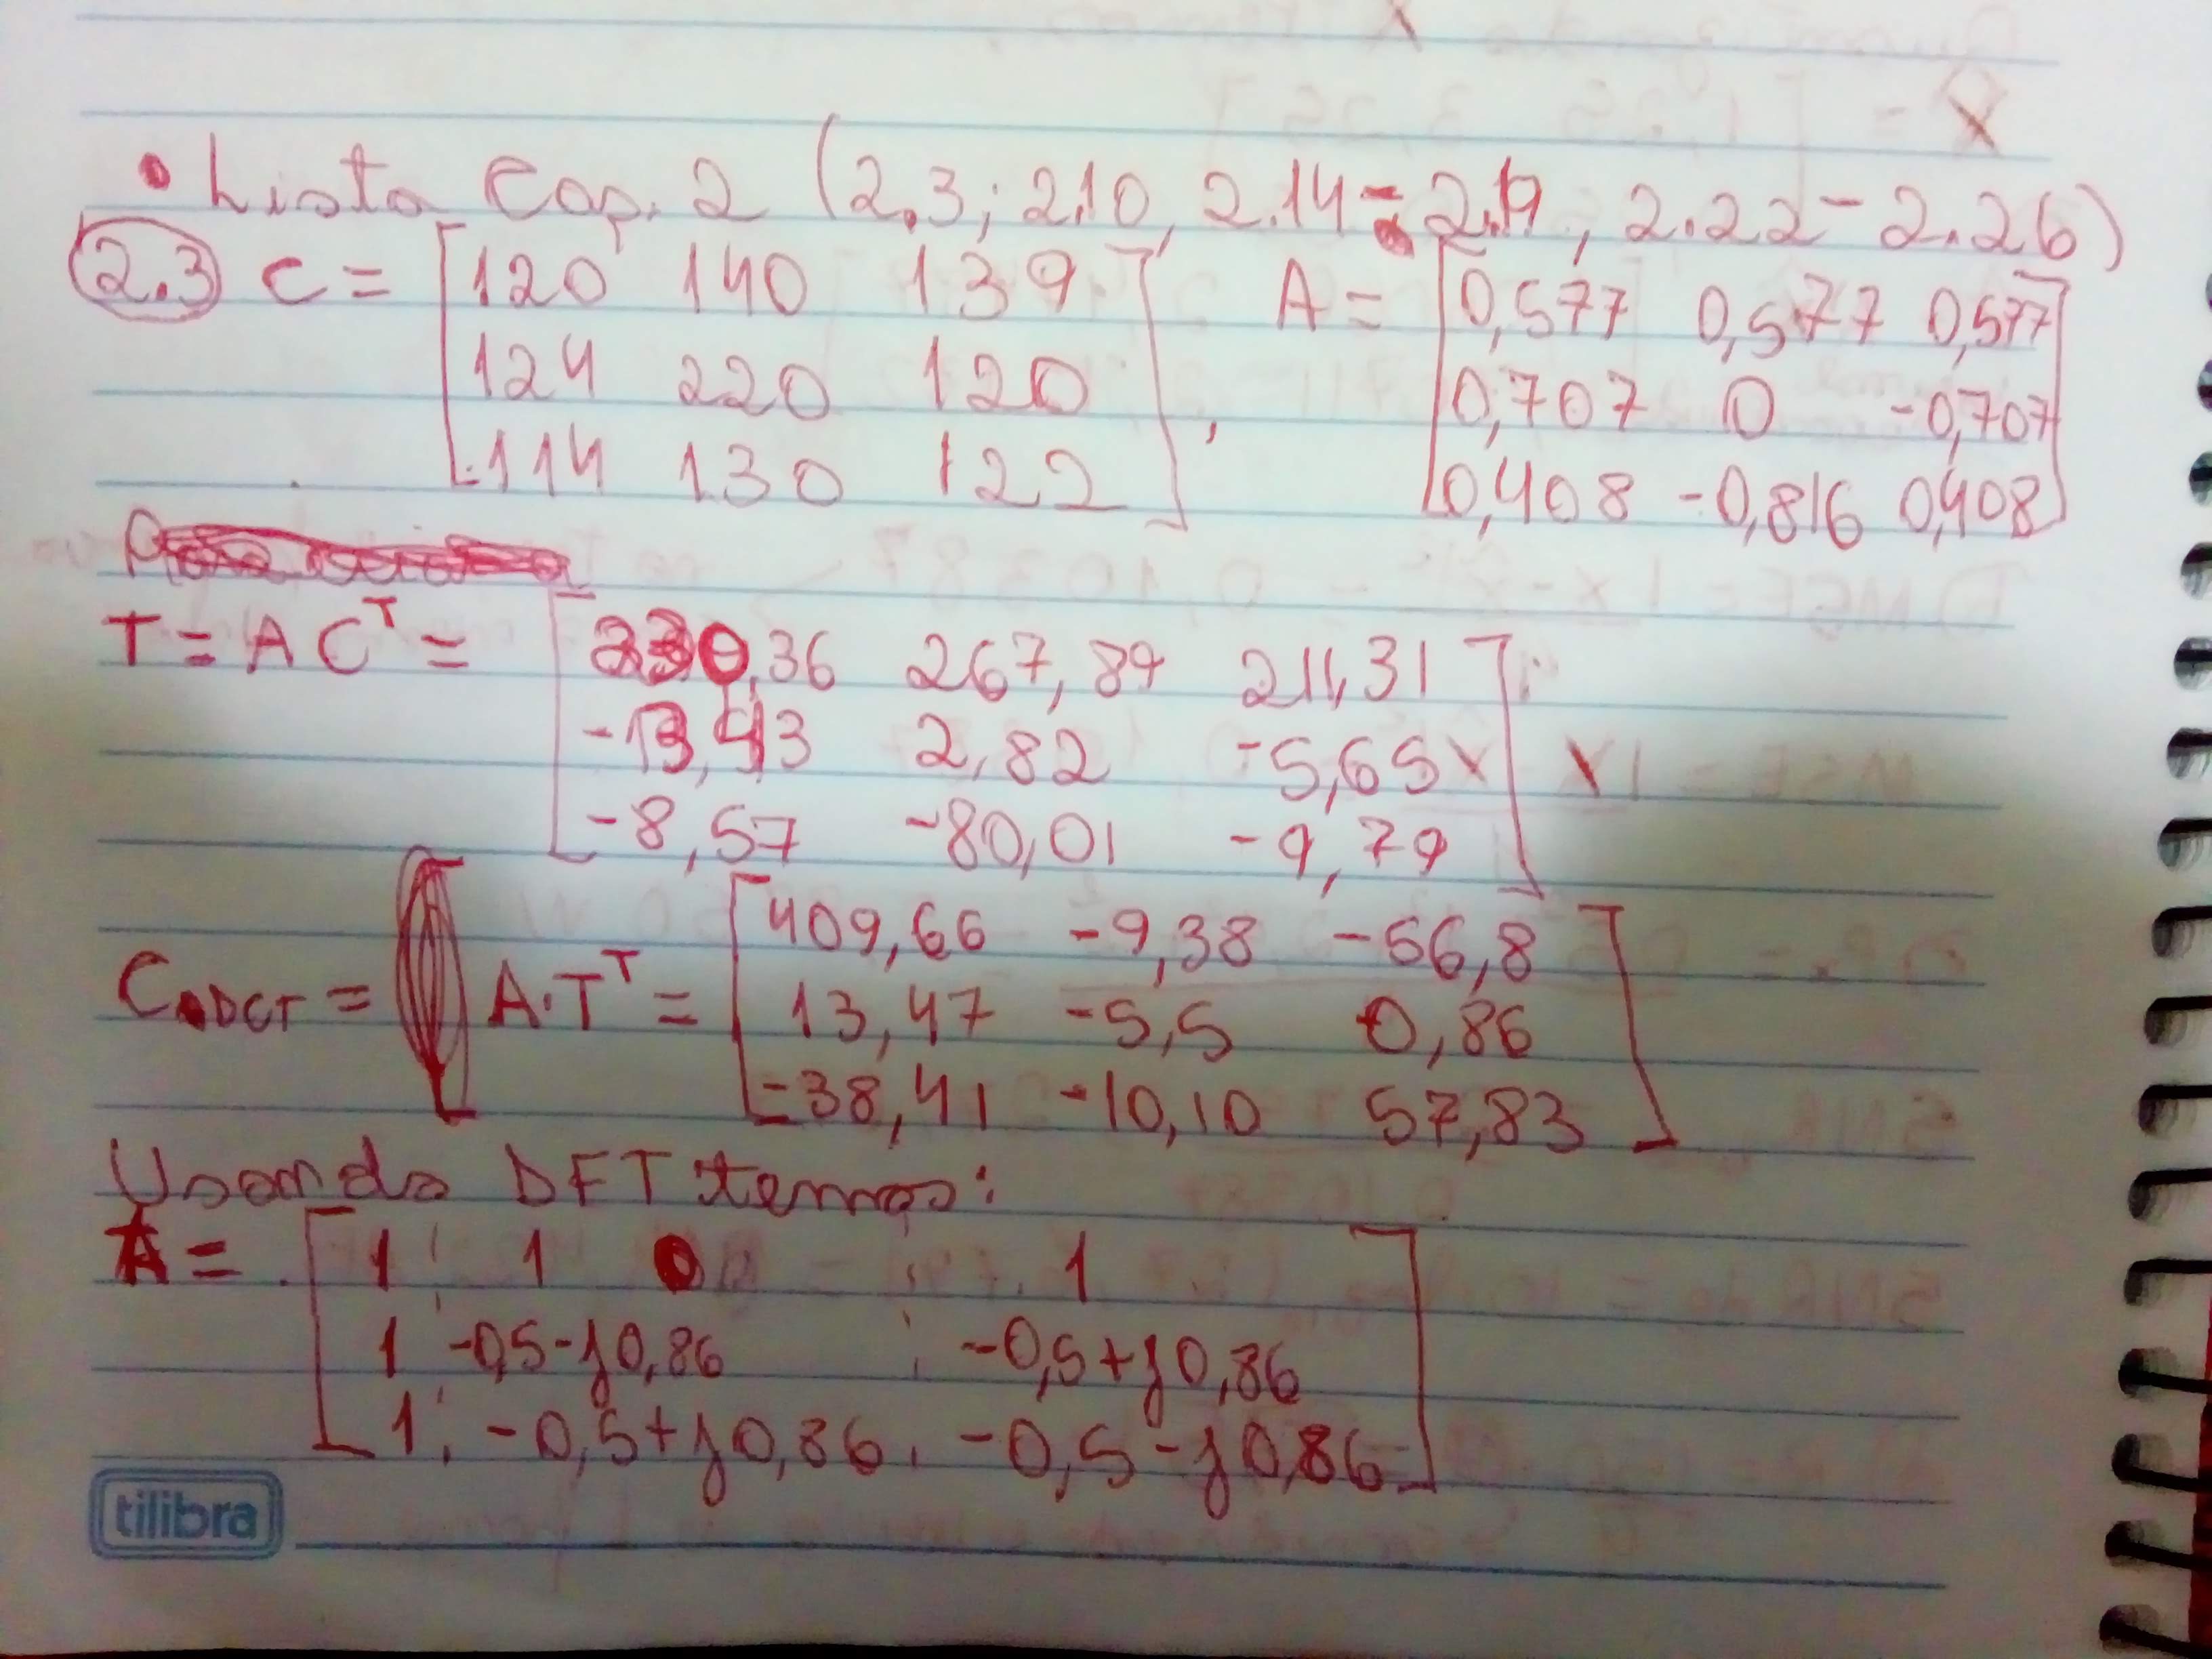 • Lista Cap. 2 (2.3; 2.10, 2.14 - 2.19, 2.22 - 2.26)
2.3 C = [120 140 139 , A = [0,577 0,577 0,577
124 220 120 0,707 0 -0,707
114 130 122] 0,408 -0,816 0,408]
T = A C^T = [230,36 267,89 211,31
-13,43 2,82 -5,65
-8,57 -80,01 -9,79]
C DCT = A.T^T = [409,66 -9,38 -56,8
13,47 -5,5 0,86
-38,41 -10,10 57,83]
Usando DFT temos:
A = [1 1 1
1 -0,5-j0,86 -0,5+j0,86
1 -0,5+j0,86 -0,5-j0,86]
tilibra